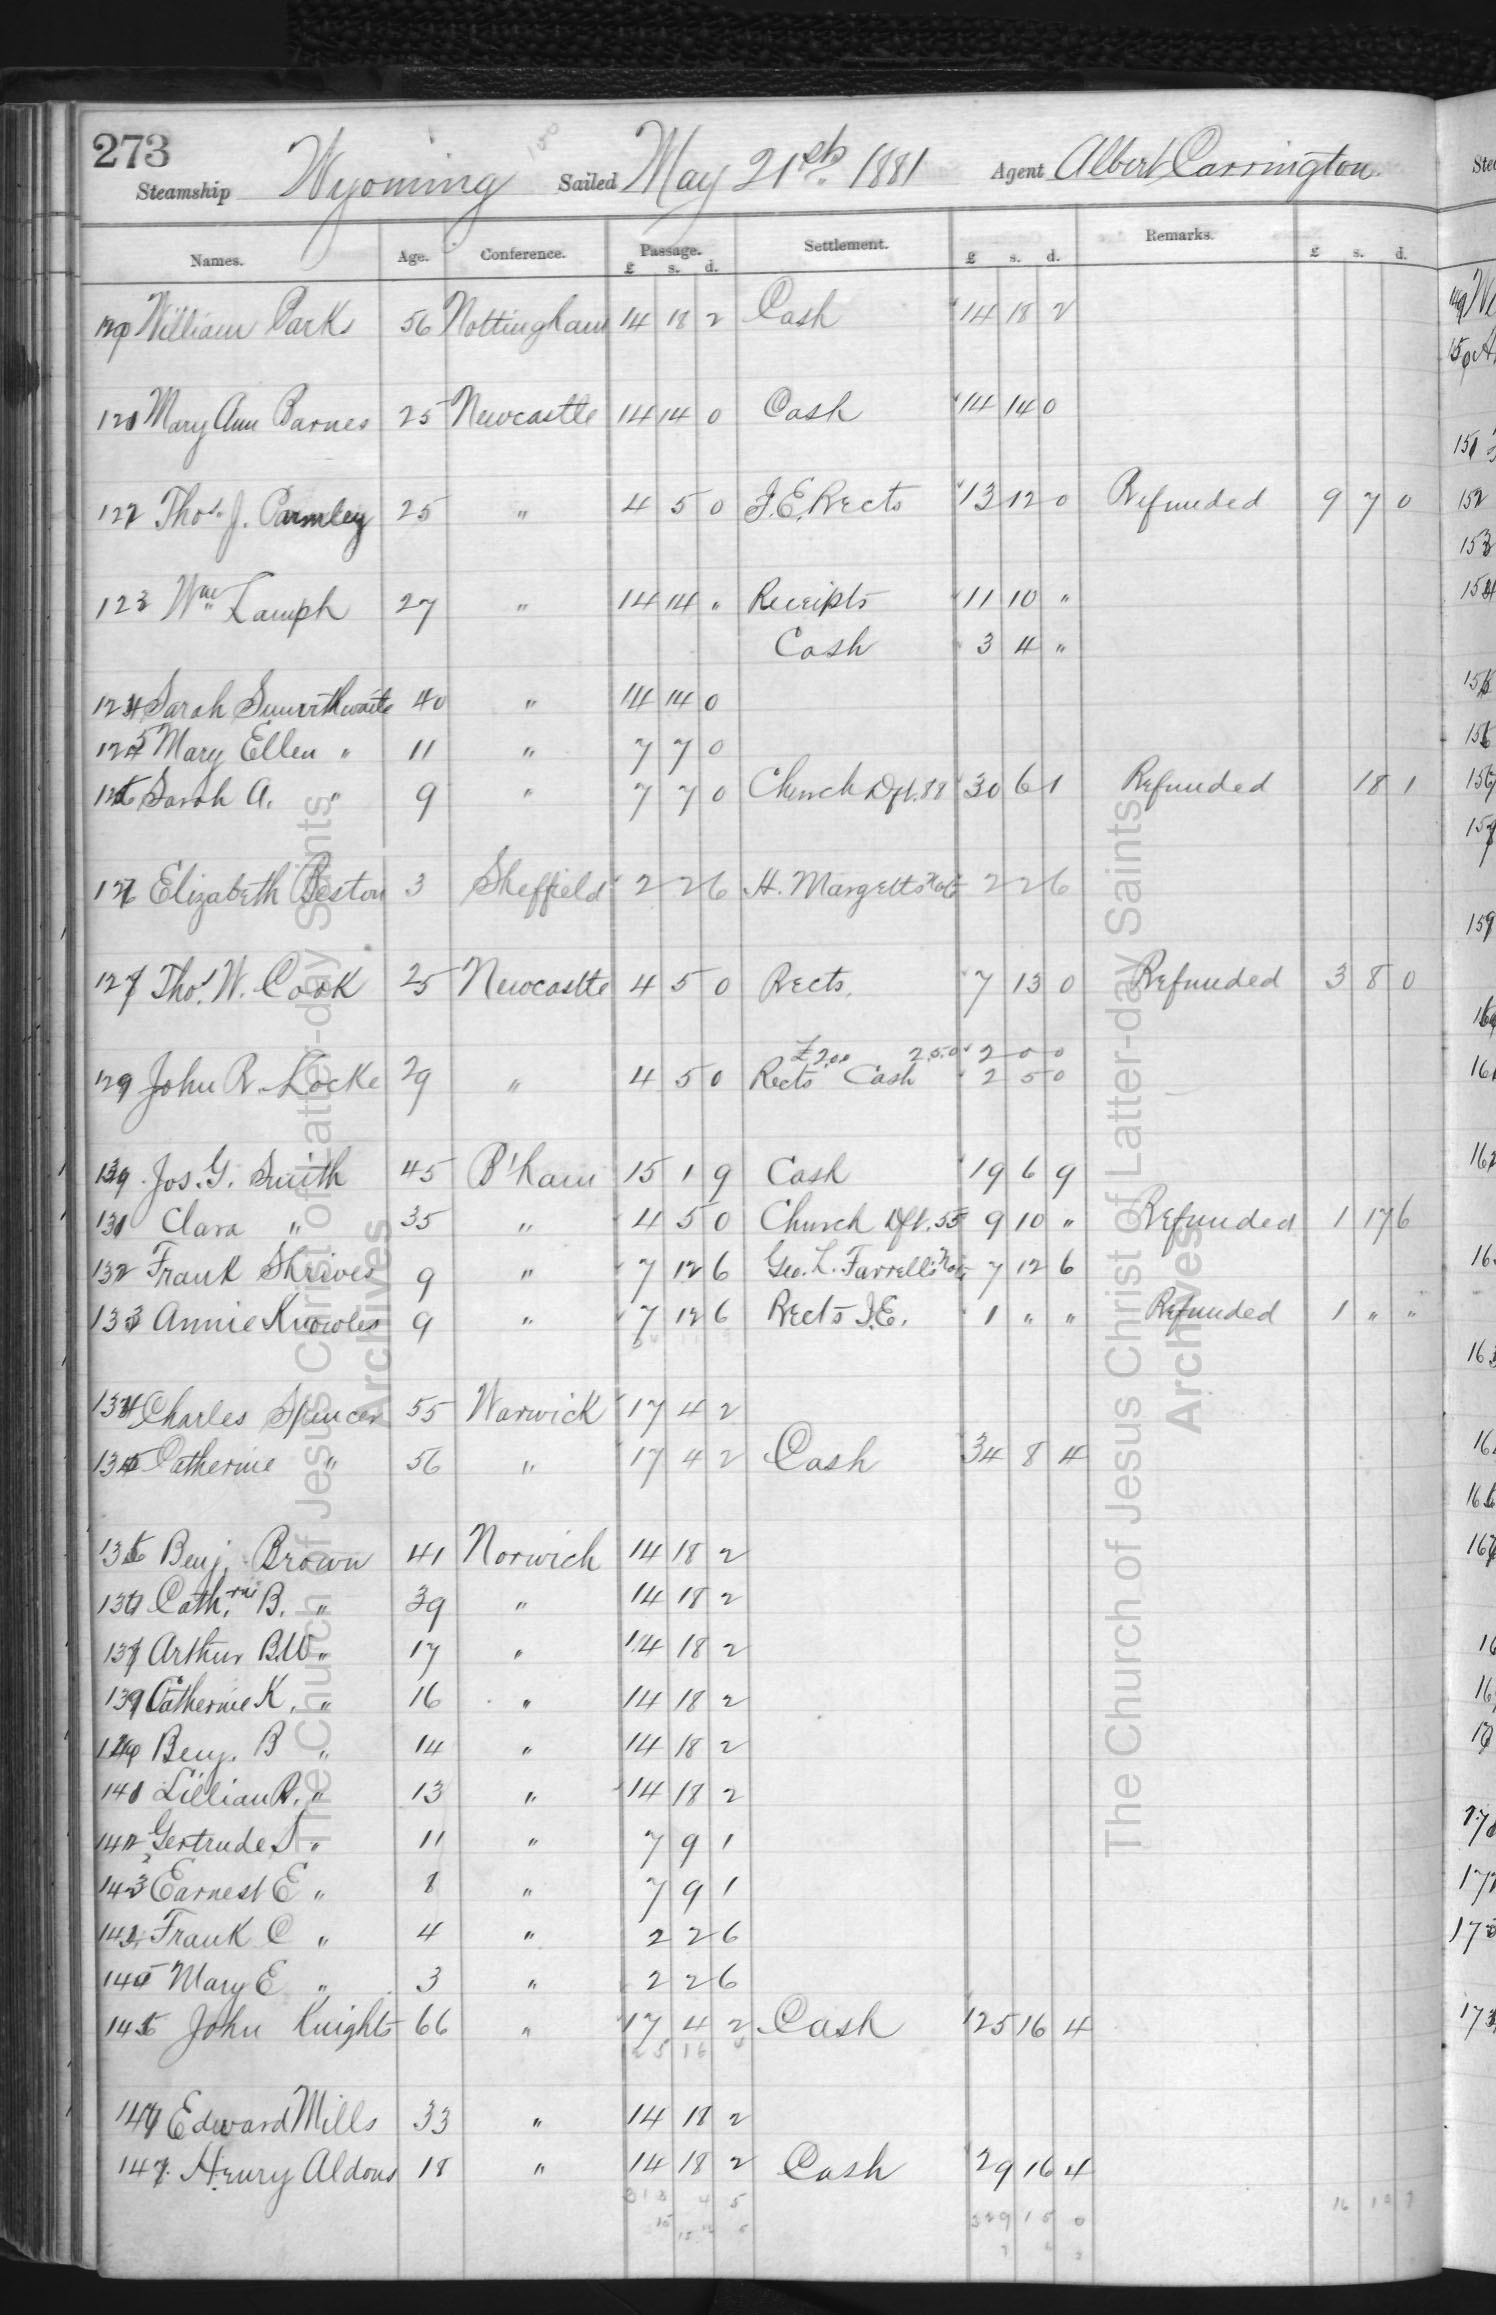 273
Steamship Wyoming Sailed May 21st. 1881 Agent Albert Carrington.
Names. Age. Conference. Passage. Settlement. Remarks.
£ s. d. £ s. d. £ s. d.
William Park 56 Nottingham 14 18 2 Cash 14 18 2
121 Mary Ann Barnes 25 Newcastle 14 14 0 Cash 14 14 0
122 Thos. J. 25 " 4 5 0 I.E. Rects 13 12 0 Refunded 9 7 0
123 Wm Lamph 27 " 14 14 " Receipts 11 10 "
Cash 3 4 "
124 Sarah 40 " 14 14 0
125 Mary Ellen " 11 " 7 7 0
126 Sarah A. " 9 " 7 7 0 Church Dft. 88 30 6 1 Refunded 18 1
127 Elizabeth Beston 3 Sheffield 2 2 6 H. Margetts Note 2 2 6
Thos. W. Cook 25 Newcastle 4 5 0 Rects. 7 13 0 Refunded 3 8 0
£2.0.0 2.5.0 2 0 0
129 John R. Locke 29 " 4 5 0 Rects Cash 2 5 0
Jos. G. Smith 45 B'ham 15 1 9 Cash 19 6 9
131 Clara " 35 " 4 5 0 Church Dft. 55 9 10 " Refunded 1 17 6
132 Frank Shrives 9 " 7 12 6 Geo. L. Farrell's Note 7 12 6
133 Annie Knowles 9 " 7 12 6 Rects I.E. 1 " " Refunded 1 " "
134 Charles Spencer 55 Warwick 17 4 2
135 Catherine " 56 " 17 4 2 Cash 34 8 4
136 Benj. Brown 41 Norwich 14 18 2
137 Cath.rne B. " 39 " 14 18 2
Arthur B.W " 17 " 14 18 2
139 Catherine K. " 16 " 14 18 2
140 Benj. B " 14 " 14 18 2
141 Lillian R. " 13 " 14 18 2
142 Gertrude S " 11 " 7 9 1
143 Earnest E " 8 " 7 9 1
Frank C " 4 " 2 2 6
145 Mary E " 3 " 2 2 6
146 John Knights 66 " 17 4 2 Cash 125 16 4
147 Edward Mills 33 " 14 18 2
Henry Aldous 18 " 14 18 2 Cash 29 16 4
The Church of Jesus Christ of Latter-day Saints
Archives
The Church of Jesus Christ of Latter-day Saints
Archives